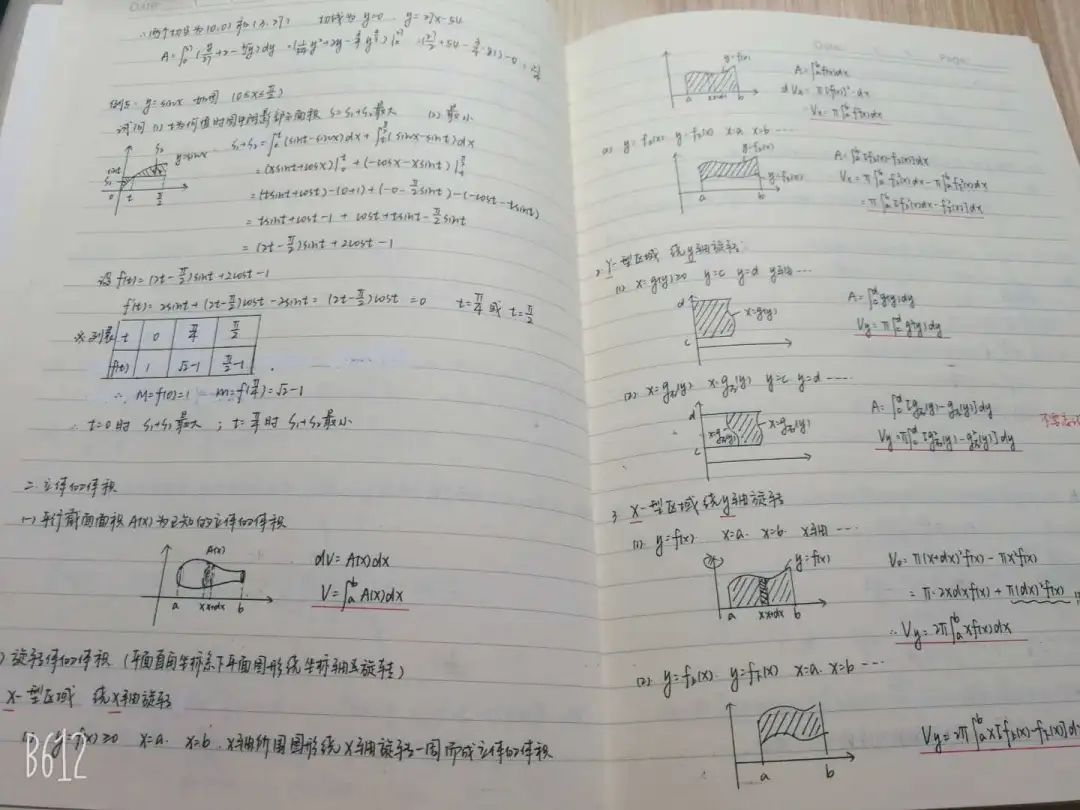 ∴两个切点为(0,0)和(3,27) 切线为 y=0, y=27x-54
A=∫₀²⁷(y/27+2-∛y)dy=(1/54 y²+2y-3/4 y^(4/3))|₀²⁷
例5. y=sinx 如图 (0≤x≤π/2)
试问 (1) t为何值时图中阴影部分面积 S=S₁+S₂最大 (2) 最小
S₂
y=sinx
S₁+S₂=∫₀ᵗ(sint-sinx)dx+∫ₜ^(π/2)(sinx-sint)dx
sint
S₁
=(xsint+cosx)|₀ᵗ+(-cosx-xsint)|ₜ^(π/2)
0 t π/2
=(tsint+cost)-(0+1)+(-0-π/2 sint)-(-cost-tsint)
=tsint+cost-1+cost+tsint-π/2 sint
=(2t-π/2)sint+2cost-1
设f(t)=(2t-π/2)sint+2cost-1
f'(t)=2sint+(2t-π/2)cost-2sint=(2t-π/2)cost=0 t=π/4或t=π/2
※列表 t 0 π/4 π/2
f(t) 1 √2-1 π/2-1
∴ M=f(0)=1 m=f(π/4)=√2-1
∴ t=0时 S₁+S₂最大; t=π/4时 S₁+S₂最小
二.立体的体积
(一)平行截面面积A(x)为已知的立体的体积
A(x)
dV=A(x)dx
V=∫ₐᵇA(x)dx
a x x+dx b
)旋转体的体积(平面直角坐标系下平面图形绕坐标轴旋转)
X-型区域 绕X轴旋转
(1) y=f(x)≥0 x=a. x=b. x轴所围图形绕X轴旋转一周而成立体的体积
B612
Date Page
y=f(x)
A=∫ₐᵇf(x)dx
dVx=π[f(x)]²·dx
a x x+dx b
Vx=π∫ₐᵇf²(x)dx
(2) y=f₁(x) y=f₂(x) x=a x=b ……
y=f₂(x)
A=∫ₐᵇ[f₂(x)-f₁(x)]dx
y=f₁(x)
Vx=π∫ₐᵇf₂²(x)dx-π∫ₐᵇf₁²(x)dx
a b
=π∫ₐᵇ[f₂²(x)-f₁²(x)]dx
2.Y-型区域 绕y轴旋转
(1) x=g(y)≥0 y=c y=d y轴……
d
x=g(y)
c
A=∫꜀ᵈg(y)dy
Vy=π∫꜀ᵈg²(y)dy
(2) x=g₁(y) x=g₂(y) y=c y=d ……
d
x=g₁(y)
x=g₂(y)
c
A=∫꜀ᵈ[g₂(y)-g₁(y)]dy
Vy=π∫꜀ᵈ[g₂²(y)-g₁²(y)]dy
3. X-型区域绕y轴旋转
(1) y=f(x) x=a. x=b. x轴……
y=f(x)
a x x+dx b
=π(x+dx)²f(x)-πx²f(x)
=π·2xdxf(x)+π(dx)²f(x)
∴Vy=2π∫ₐᵇxf(x)dx
(2) y=f₁(x) y=f₂(x) x=a. x=b ……
a b
Vy=2π∫ₐᵇx[f₂(x)-f₁(x)]dx